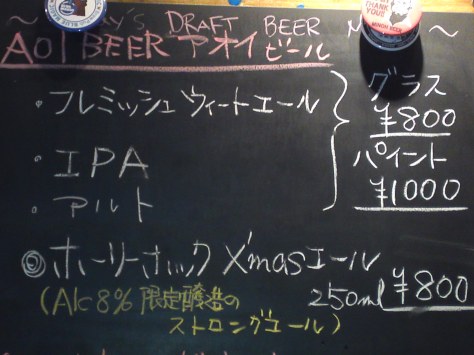 DRAFT BEER ~
AOI BEER アオイビール
・フレミッシュウィートエール
グラス
¥800
・IPA
パイント
¥1000
・アルト
◎ホーリーホック X'masエール
250ml ¥800
(Alc8% 限定醸造の
ストロングエール)
THANK YOU!!
MINOH BEER